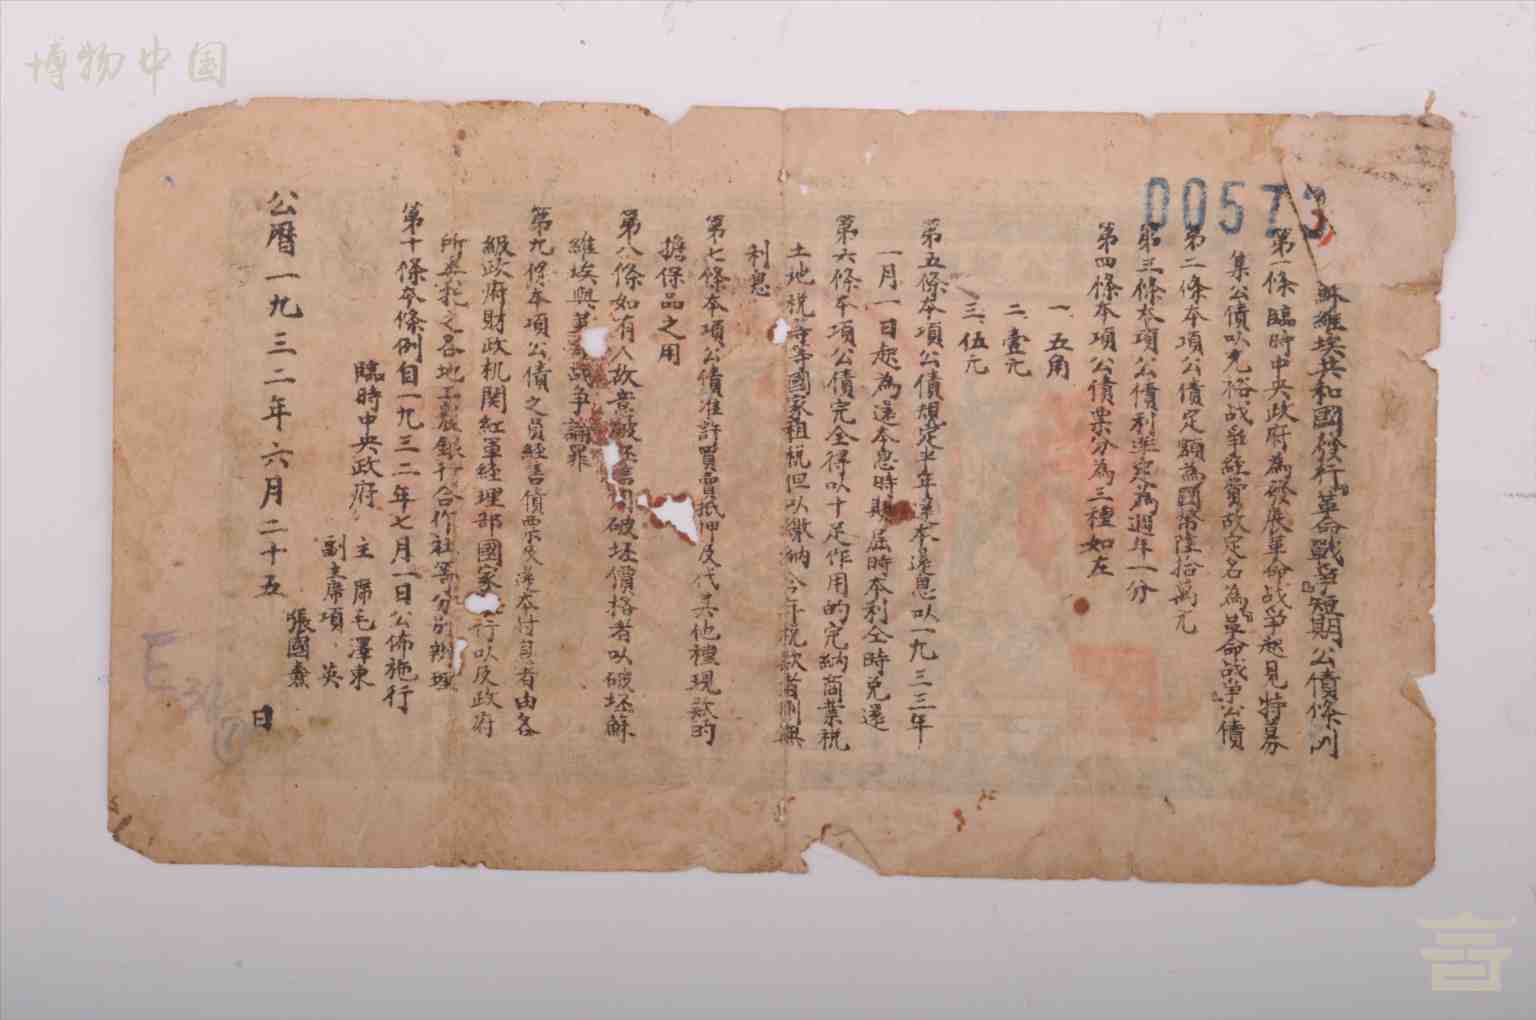 博物中国
00573
蘇維埃共和國發行『革命戰爭』短期公債條例
第一條臨時中央政府為發展革命战爭起見特募
集公債以充裕战爭經費故定名為『革命战爭』公債
第二條本項公債定額為國幣陸拾萬元
第三條本項公債利率定為週年一分
第四條本項公債票分為三種如左
一、五角
二、壹元
三、伍元
第五條本項公債規定半年還本還息以一九三三年
一月一日起為還本息時期屆時本利全時兌還
第六條本項公債完全得以十足作用的完納商業税
土地税等等國家租税但以繳納今年税款者則無
利息
第七條本項公債准許買賣抵押及代其他種現款的
擔保品之用
第八條如有人故意破坯信用破坯價格者以破坯蘇
維埃與革命战争論罪
第九條本項公債之還本付息者由各
級政府財政机関紅軍經理部國家行以及政府
所委託之各地工農銀行合作社等分别辦理
第十條本條例自一九三二年七月一日公佈施行
臨時中央政府 主席毛澤東
副主席項英
張國燾
公曆一九三二年六月二十五日